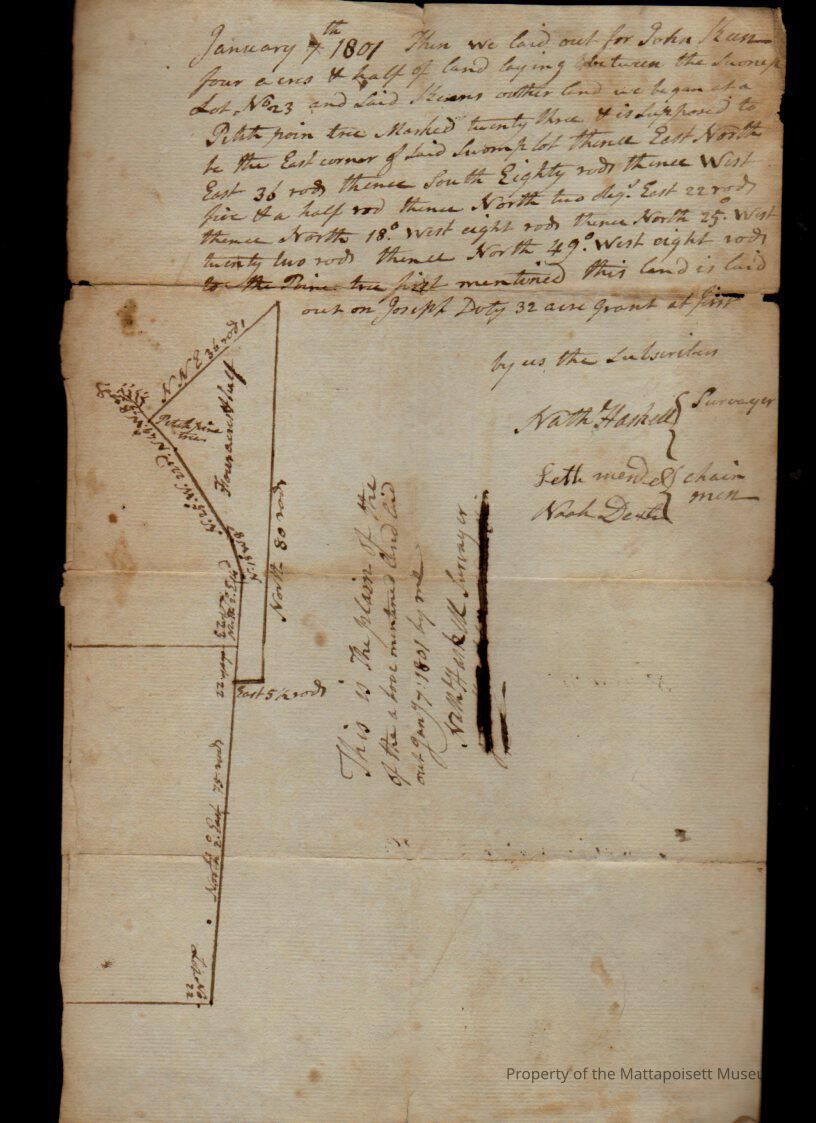 January 7th 1801 Then we laid out for John Skeen
four acres & half of land laying between the Swomp
Lot No 23 and said Skeens outher land we began at a
Petch poin tree Marked twenty three & is supposed to
be the East corner of said Swomp lot thence East North
East 36 rods thence South Eighty rods thence West
five & a half rod thence North two degs East 22 rods
thence North 18° West eight rods thence North 25° West
twenty two rods thence North 49° West eight rods
to the Pine tree first mentined this land is laid
out on Joseph Doty 32 acre grant at first
by us the Subscribers
Nathll Haskell Survayer
Seth mende chain
Noah Dexter men
N N E 36 rods
Petch pine
tree
Four acres & half
N 25° W. 22 r
N 18° W 8
North 80 rods
East 5½ rods
Lot No 23
22
North 2° East 75 rods
Lot No
22
This is The plain of the
of the above mentined land laid
out Jany 7: 1801 by me
Nathll Haskell Survayer
Property of the Mattapoisett Museu